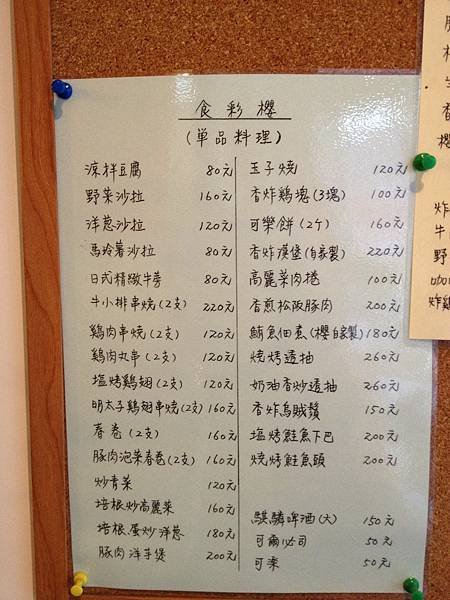 食彩櫻
(単品料理)
涼拌豆腐 80元
野菜沙拉 160元
洋葱沙拉 120元
馬玲薯沙拉 80元
日式精緻牛蒡 80元
牛小排串燒(2支) 220元
鶏肉串燒(2支) 120元
鶏肉丸串(2支) 120元
塩烤鶏翅(2支) 120元
明太子鶏翅串燒(2支) 160元
春卷(2支) 160元
豚肉泡菜春卷(2支) 160元
炒青菜 120元
培根炒高麗菜 160元
培根.蛋炒洋葱 180元
豚肉洋芋煲 200元
玉子燒 120元
香炸鶏塊(3塊) 100元
可樂餅(2ケ) 160元
香炸漢堡(自家製) 220元
高麗菜肉捲 100元
香煎松阪豚肉 200元
鮪魚佃煮(櫻自家製) 180元
燒烤透抽 260元
奶油香炒透抽 260元
香炸烏賊鬚 150元
塩烤鮭魚下巴 200元
燒烤鮭魚頭 200元
騏驎啤酒(大) 150元
可爾必司 50元
可楽 50元
香
櫻
炸
牛
野
咖
炸鶏